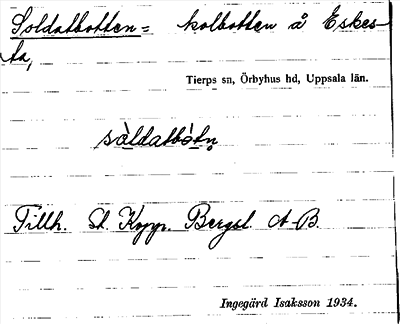 Soldatbotten = kolbotten å Eskes-
ta,
Tierps sn, Örbyhus hd, Uppsala län.
sòldatbòtn̥
Tillh. St. Kopp. Bergsl. A-B.
Ingegärd Isaksson 1934.